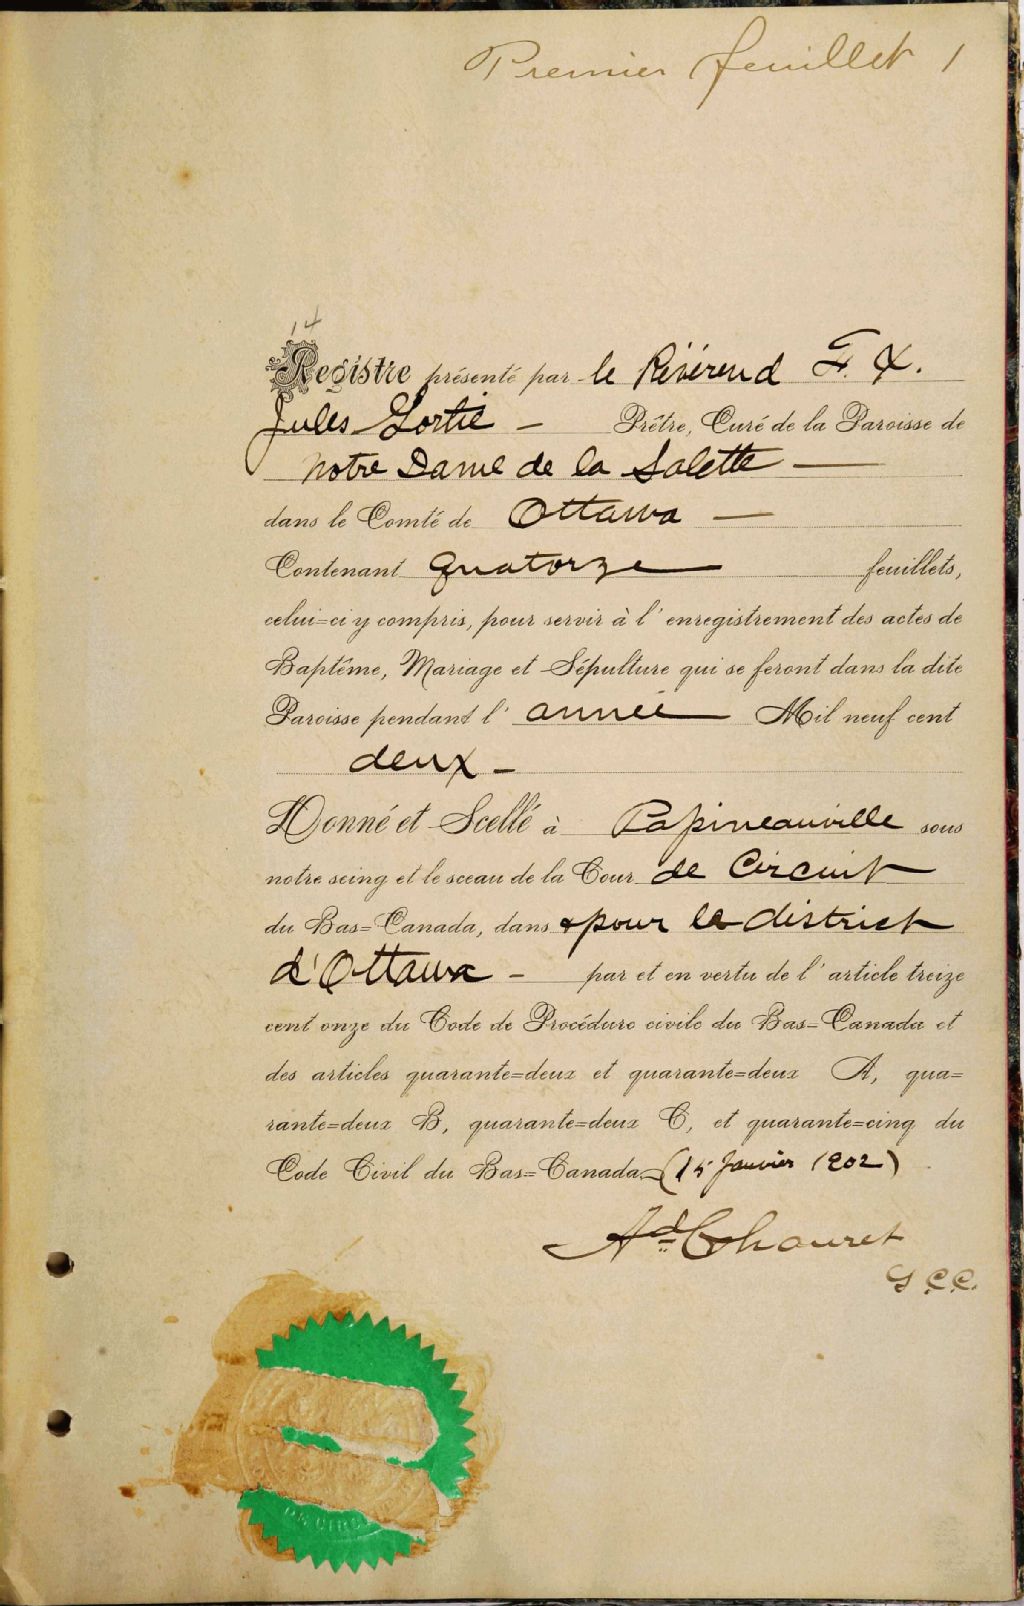 Premier feuillet 1
14
Registre présenté par le Révérend F. X.
Jules Gortie – Prêtre, Curé de la Paroisse de
Notre Dame de la Salette —
dans le Comté de Ottawa —
Contenant quatorze feuillets,
celui=ci y compris, pour servir à l'enregistrement des actes de
Baptême, Mariage et Sépulture qui se feront dans la dite
Paroisse pendant l'année Mil neuf cent
deux –
Donné et Scellé à Papineauville sous
notre seing et le sceau de la Cour de Circuit
du Bas=Canada, dans & pour le district
d'Ottawa – par et en vertu de l'article treize
cent onze du Code de Procédure civile du Bas=Canada et
des articles quarante=deux et quarante=deux A, qua=
rante=deux B, quarante=deux C, et quarante=cinq du
Code Civil du Bas=Canada. (15 Janvier 1902)
Ad Chauret
G C.C.
DE CIRC